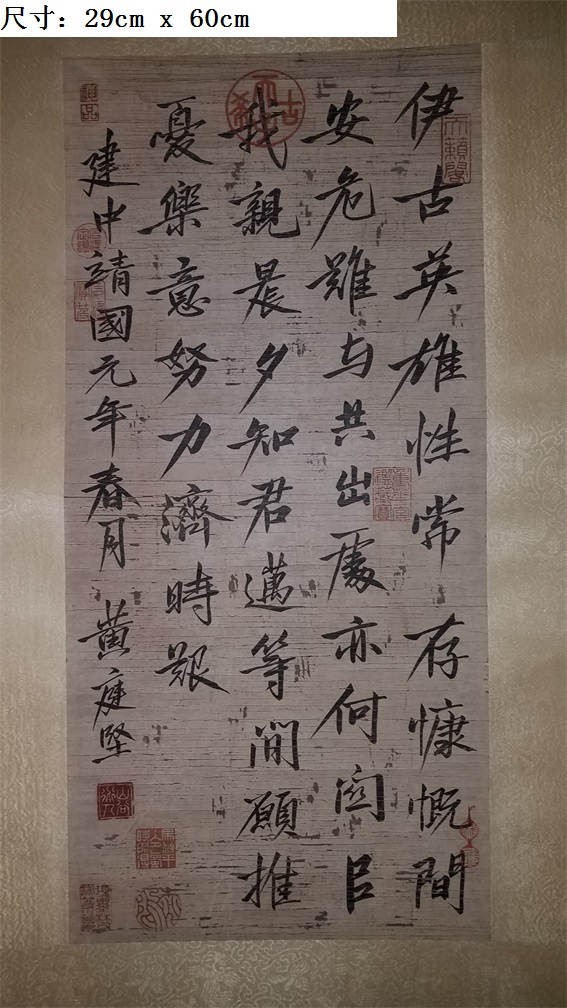 尺寸：29cm x 60cm
伊古英雄性常存慷慨間
安危雖与共出處亦何関㠯
我親晨夕知君邁等閒願推
憂樂意努力濟時艱
建中靖國元年春月 黄庭堅
天籟閣
神品